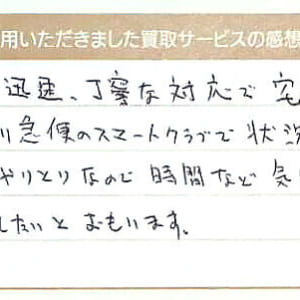 用いただきました買取サービスの感想
迅速、丁寧な対応で 宅
り急便のスマートクラブで状況
やりとりなので 時間など 気
したいと おもいます。